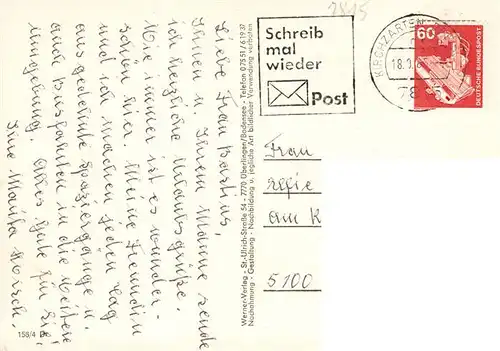 7815
Liebe Frau Bastius,
Ihnen u. Ihrem Manne sende
ich herzliche Urlaubsgrüße.
Wie immer ist es wunder-
schön hier. Meine Freundin
und ich machen jeden Tag
ausgedehnte Spaziergänge u.
auch Busfahrten in die weitere
Umgebung. Alles Gute für Sie,
Ihre Marita
158/4
Werner-Verlag - St.-Ulrich-Straße 54 - 7770 Überlingen/Bodensee - Telefon 07551/61937
Nachahmung - Gestaltung - Nachbildung u. jegliche Art bildlicher Verwendung verboten
Schreib
mal
wieder
Post
KIRCHZARTEN
18.9.
78 15
60
DEUTSCHE BUNDESPOST
Frau
am K
5100